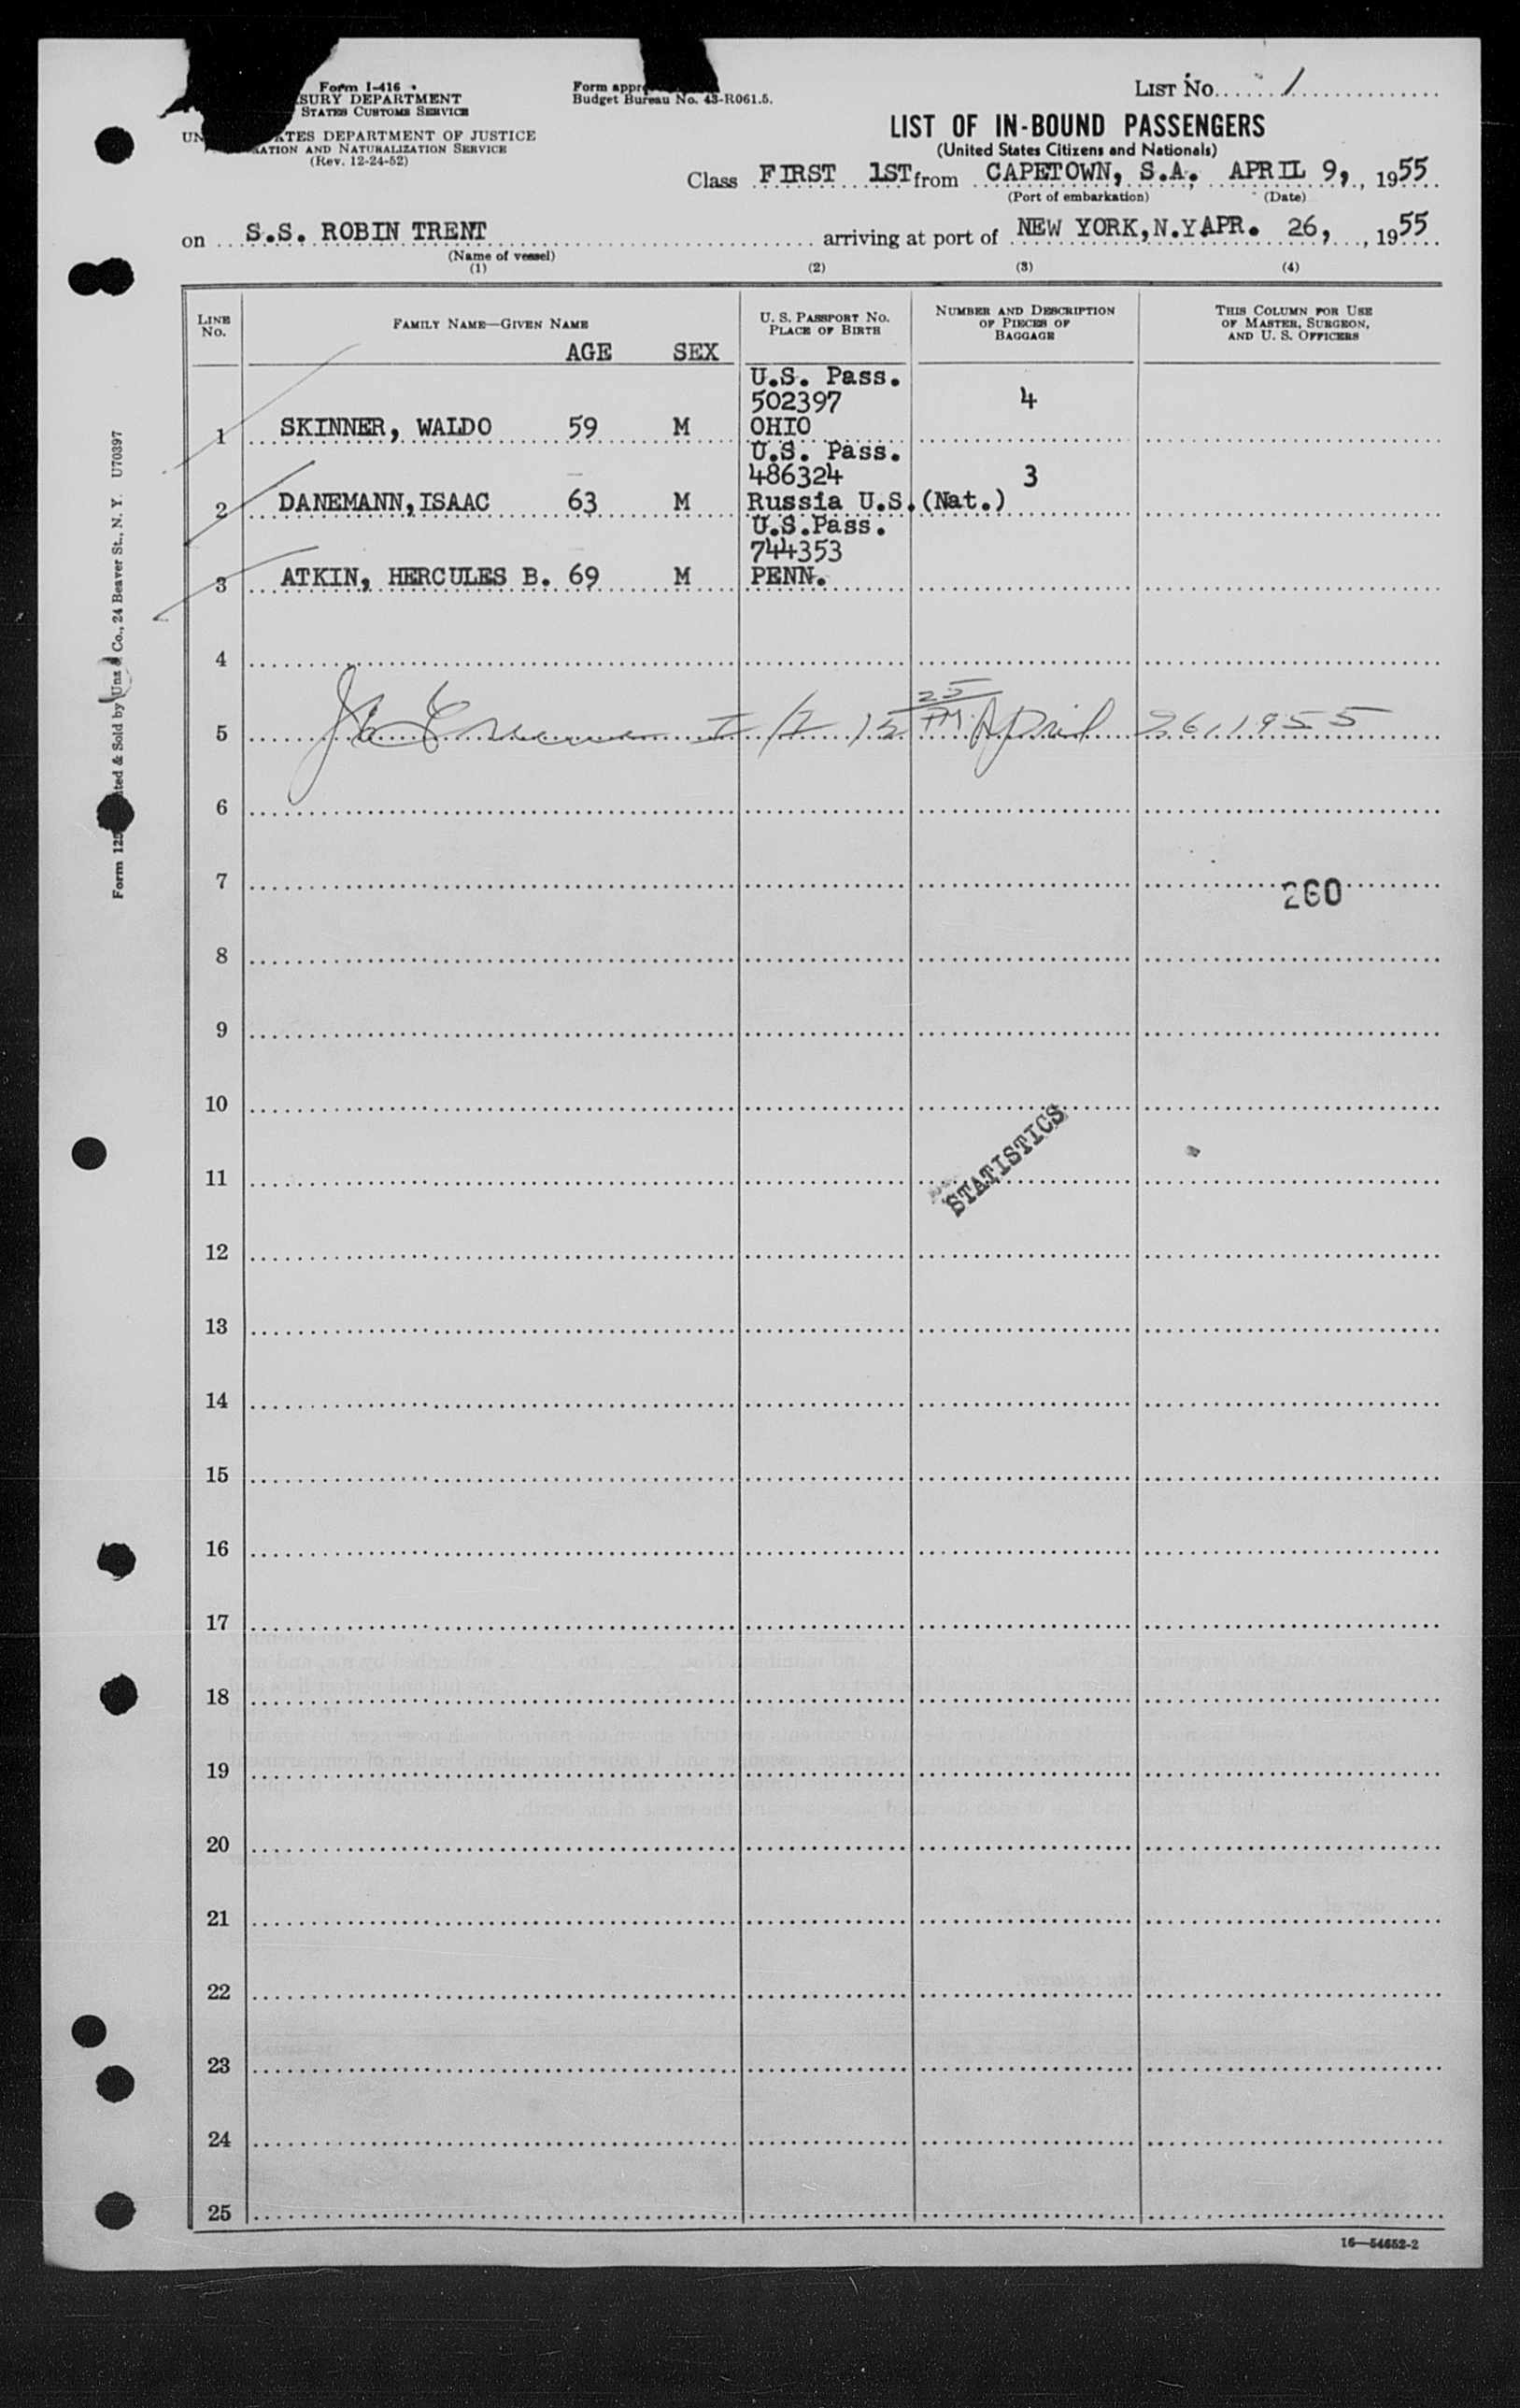 Form I-416
SURY DEPARTMENT
STATES CUSTOMS SERVICE
UN TES DEPARTMENT OF JUSTICE
ATION AND NATURALIZATION SERVICE
(Rev. 12-24-52)
Form appr
Budget Bureau No. 43-R061.5.
LIST No. 1
LIST OF IN-BOUND PASSENGERS
(United States Citizens and Nationals)
Class FIRST 1ST from CAPETOWN, S.A. APRIL 9, 1955
(Port of embarkation) (Date)
on S.S. ROBIN TRENT arriving at port of NEW YORK, N.Y. APR. 26, 1955
(Name of vessel)
(1) (2) (3) (4)
LINE No. FAMILY NAME—GIVEN NAME AGE SEX U. S. PASSPORT No. PLACE OF BIRTH NUMBER AND DESCRIPTION OF PIECES OF BAGGAGE THIS COLUMN FOR USE OF MASTER, SURGEON, AND U. S. OFFICERS
U.S. Pass.
502397 4
1 SKINNER, WALDO 59 M OHIO
U.S. Pass.
486324 3
2 DANEMANN, ISAAC 63 M Russia U.S.(Nat.)
U.S.Pass.
744353
3 ATKIN, HERCULES B. 69 M PENN.
4
5 12 25 PM. April 26, 1955
6
7
260
8
9
10
STATISTICS
11
12
13
14
15
16
17
18
19
20
21
22
23
24
25
16—54652-2
Form 125 ted & Sold by Unz & Co., 24 Beaver St., N. Y. U70397